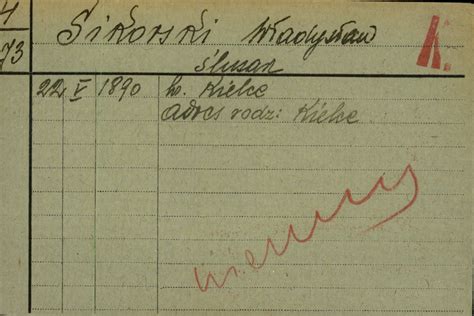 4
73
Sikorski Władysław
ślusarz
22 V 1890 w. Kielce
adres rodz: Kielce